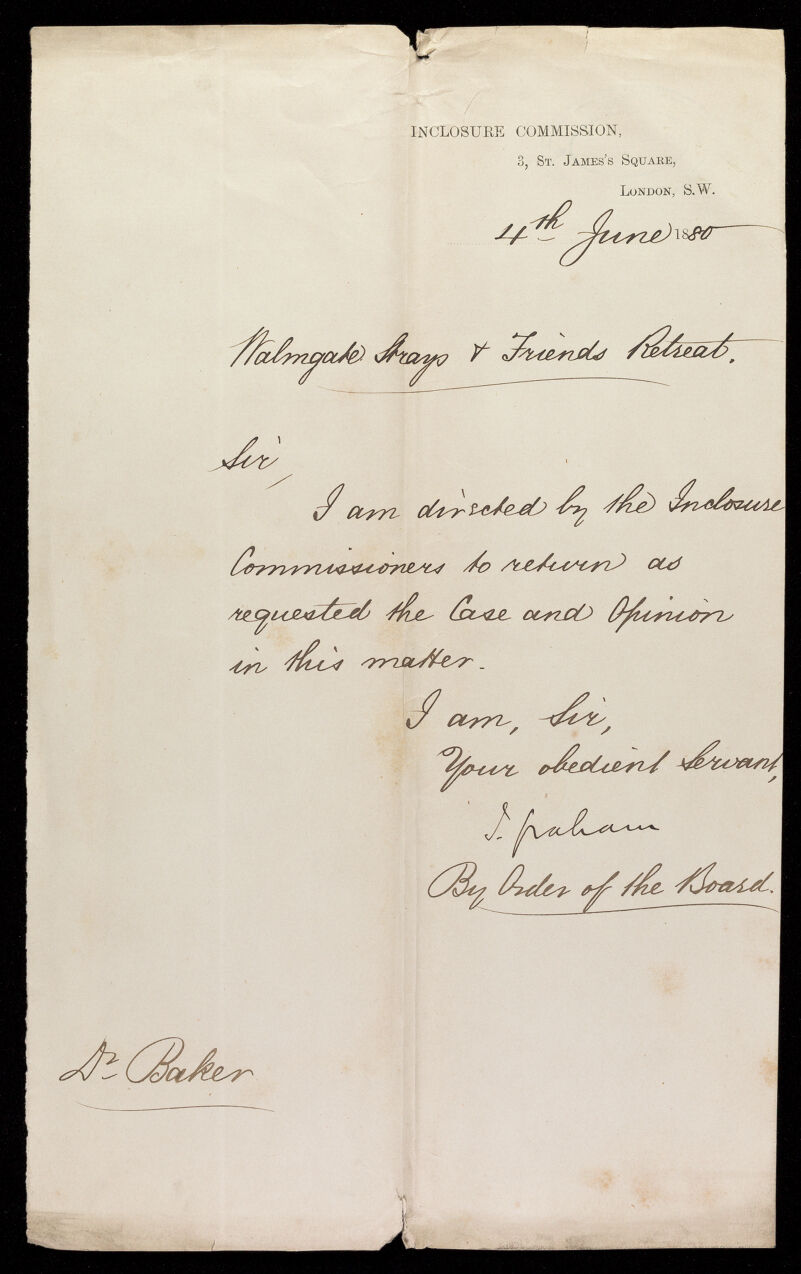 INCLOSURE COMMISSION,
3, St. James's Square,
London, S.W.
4th June 1880
Walmgate Strays & Friends Retreat.
Sir,
I am directed by the Inclosure
Commissioners to return as
requested the Case and Opinion
in this matter.
I am, Sir,
Your obedient Servant,
J. Graham
By Order of the Board.
Dr Baker